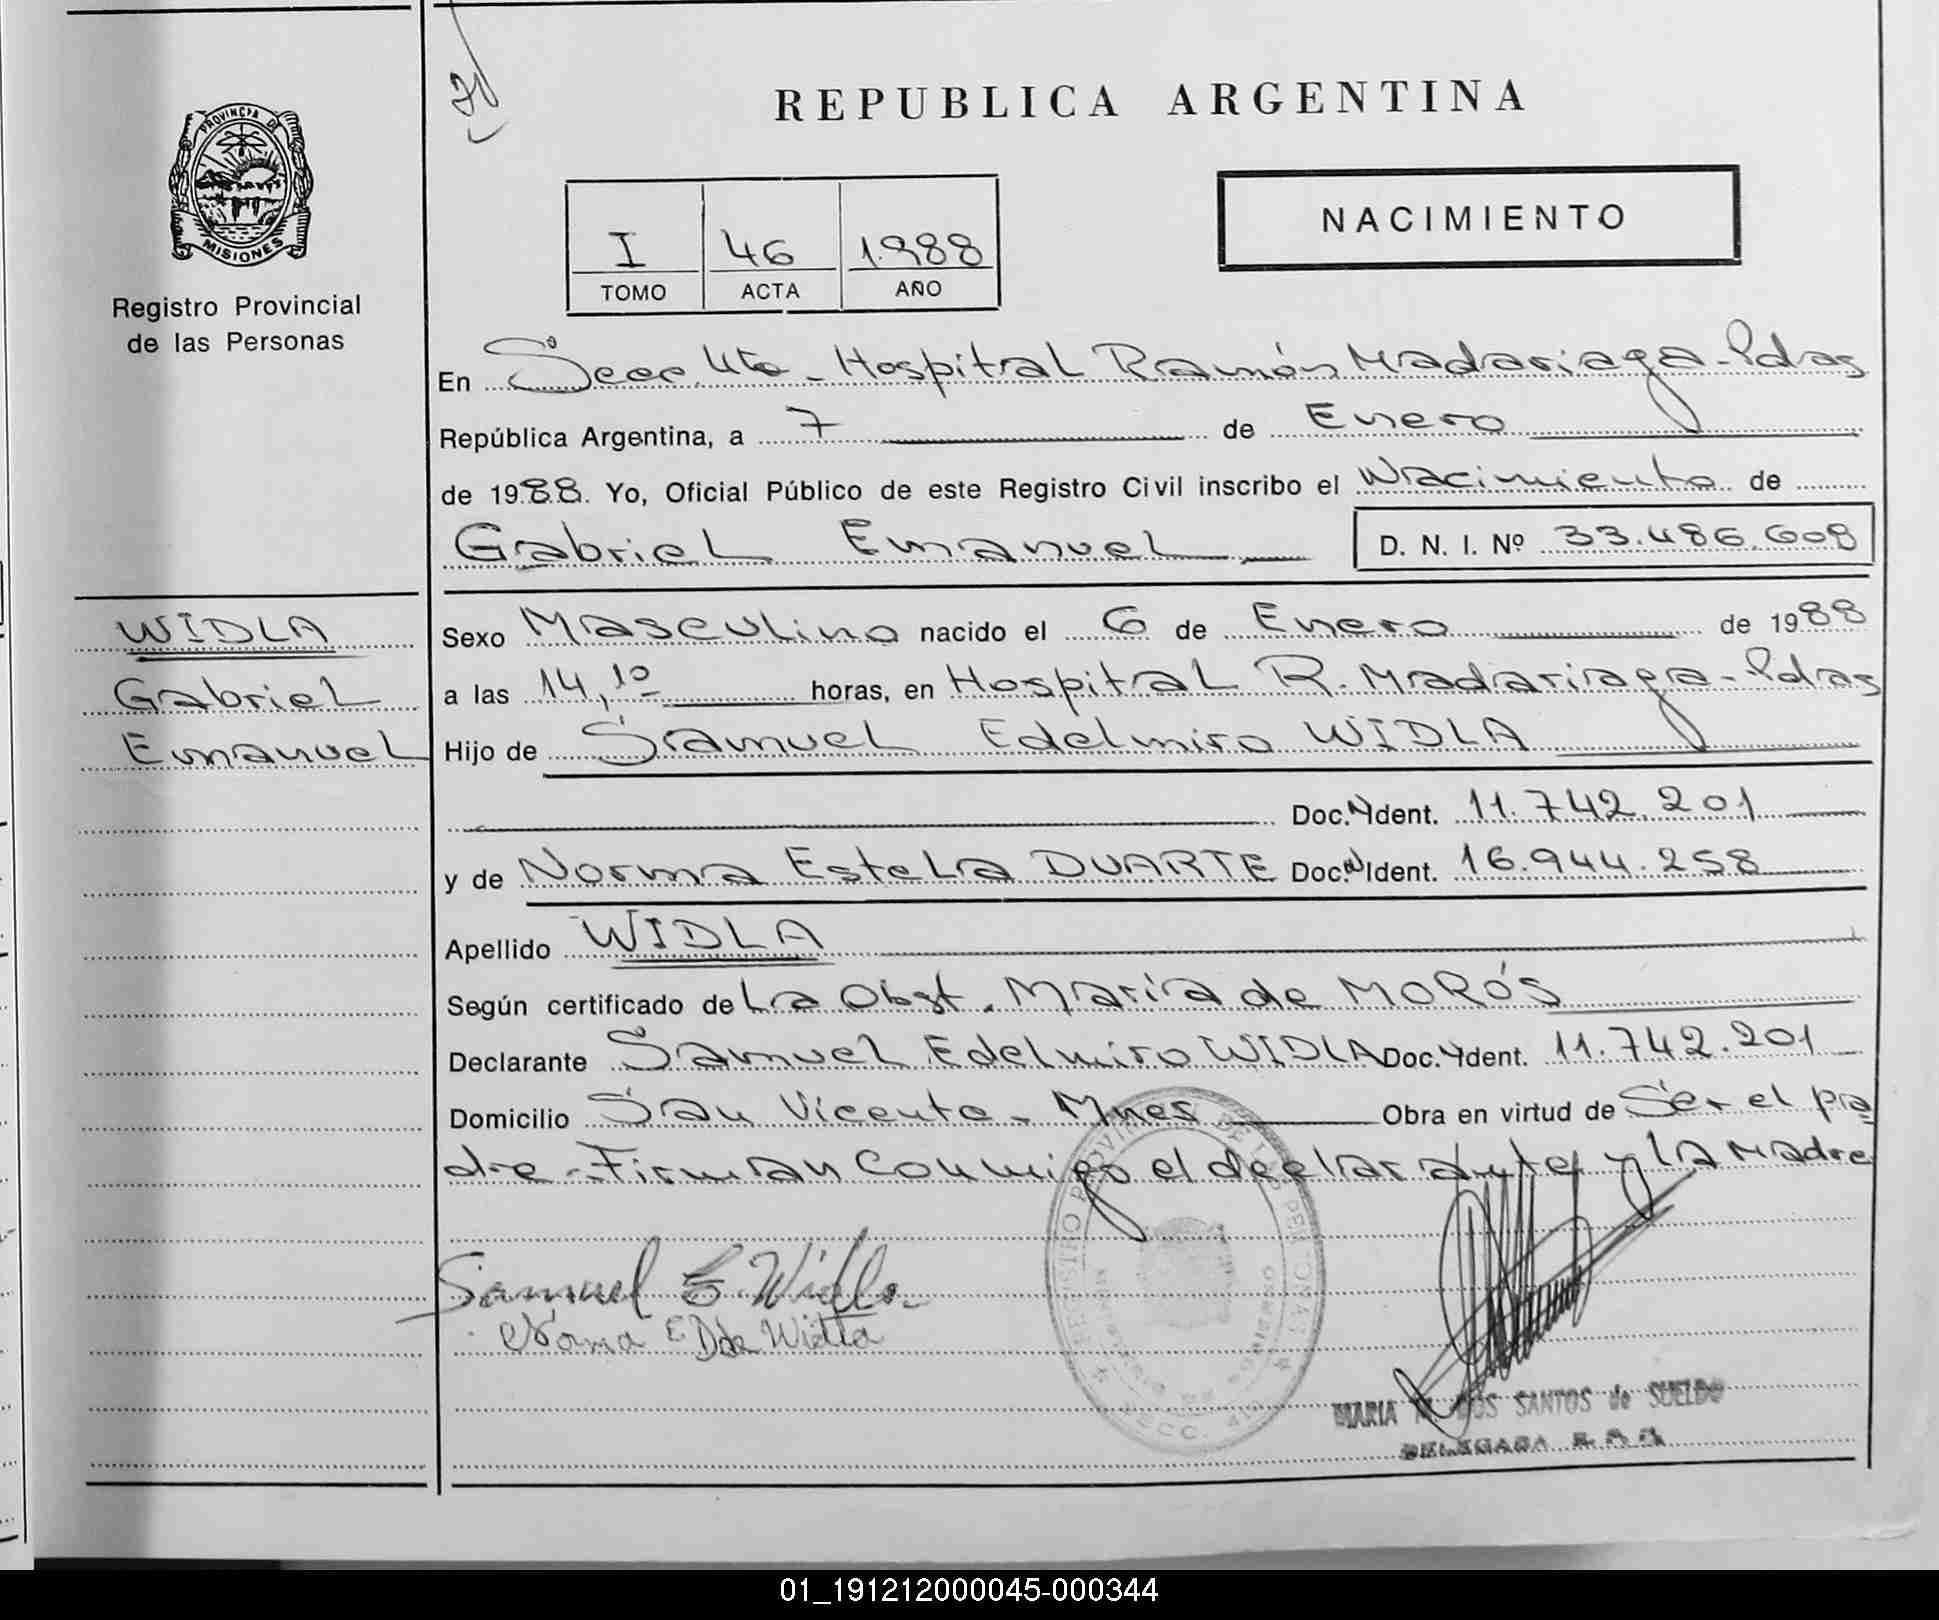 REPUBLICA ARGENTINA
PROVINCIA DE
MISIONES
Registro Provincial
de las Personas
NACIMIENTO
I 46 1.988
TOMO ACTA AÑO
En Secc. 4ta - Hospital Ramón Madariaga - Pdas
República Argentina, a 7 de Enero
de 1988. Yo, Oficial Público de este Registro Civil inscribo el Nacimiento de
Gabriel Emanuel D. N. I. Nº 33.486.608
WIDLA
Gabriel
Emanuel
Sexo Masculino nacido el 6 de Enero de 1988
a las 14,10 horas, en Hospital R. Madariaga - Pdas
Hijo de Samuel Edelmiro WIDLA
Doc. Ident. 11.742.201
y de Norma Estela DUARTE Doc. Ident. 16.944.258
Apellido WIDLA
Según certificado de La Obst. María de MORÓS
Declarante Samuel Edelmiro WIDLA Doc. Ident. 11.742.201
Domicilio San Vicente - Mnes Obra en virtud de Ser el pa
dre - Firman Conmigo el declarante y La Madre
Samuel E. Widla
Norma E D de Widla
REGISTRO PROVINCIAL DE LAS PERSONAS
MARIA M. DOS SANTOS de SUELDO
DELEGADA
01_191212000045-000344